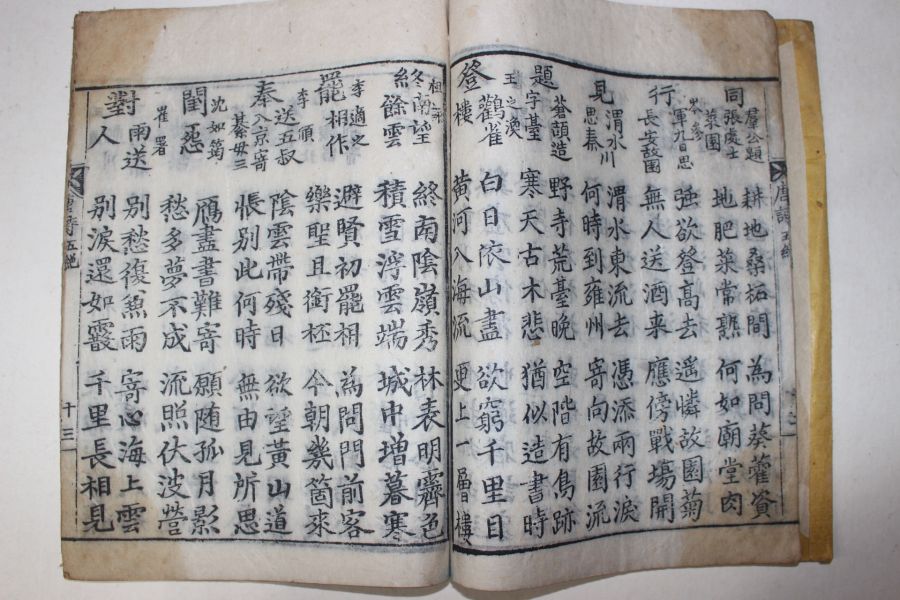 唐詩 五絶
同群公題張處士菜園
耕地桑柘間 為問葵藿資
地肥菜常熟 何如廟堂肉
行軍九日思長安故園
岑參
強欲登高去 遙憐故園菊
無人送酒來 應傍戰場開
見渭水思秦川
渭水東流去 憑添兩行淚
何時到雍州 寄向故園流
題蒼頡造字臺
野寺荒臺晚 空階有鳥跡
寒天古木悲 猶似造書時
登鸛雀樓
王之渙
白日依山盡 欲窮千里目
黃河入海流 更上一層樓
終南望餘雲
祖詠
終南陰嶺秀 林表明霽色
積雪浮雲端 城中增暮寒
罷相作
李適之
避賢初罷相 為問門前客
樂聖且銜柸 今朝幾箇來
秦送五叔入京寄綦毋三
李頎
陰雲帶殘日 欲望黃山道
悵別此何時 無由見所思
閨怨
沈如筠
鴈盡書難寄 願隨孤月影
愁多夢不成 流照伏波營
對雨送人
崔署
別愁復兼雨 寄心海上雲
別淚還如霰 千里長相見
唐詩五絶 十三